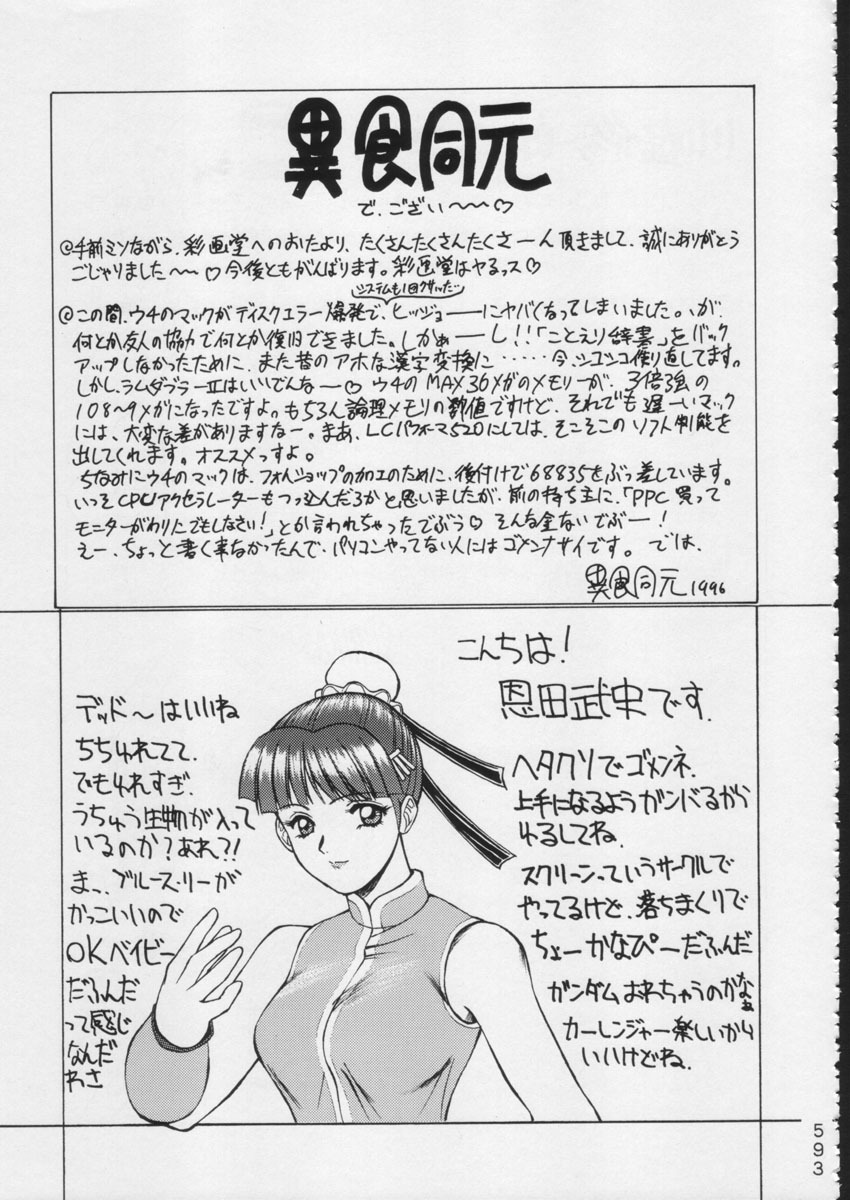 異食同元
で、ござい〜〜♡
◎手前ミソながら、彩画堂へのおたより、たくさんたくさんたくさーん頂きまして、誠にありがとう
ごじゃりました〜〜♡今後ともがんばります。彩画堂はヤるッス♡
システムも1回クサッた…
◎この間、ウチのマックがディスクエラー爆発で、ヒッジョーーにヤバくなってしまいました。が、
何とか友人の協力で何とか復旧できました。しかぁーーし!!「ことえり辞書」をバック
アップしなかったために、また昔のアホな漢字変換に‥‥‥今、シコシコ作り直してます。
しかし、ラムダブラーⅡはいいでんなー〜♡ウチのMAX36メガのメモリーが、3倍強の
108〜9メガになったですよ。もちろん論理メモリの数値ですけど、それでも遅ーいマック
には、大変な差がありますなー。まあ、LCパフォーマ520にしては、そこそこのソフト判能を
出してくれます。オススメっすよ。
ちなみにウチのマックは、フォトショップの加工のために、後付けで68835をぶっ差しています。
いっそCPUアクセラレーターもつっ込んだろかと思いましたが、前の持ち主に、「PPC買って
モニターがわりにでもしなさい!」とか言われちゃったでぶう♡そんな金ないでぶー!
えー、ちょっと書く事なかったんで、パソコンやってない人にはゴメンナサイです。では、
異食同元1996
こんちは!
恩田武史です.
ヘタクソでゴメンネ.
上手になるようガンバるから
ゆるしてね.
スクリーンっていうサークルで
やってるけど、落ちまくりで
ちょーかなぴーだふんだ
ガンダムおわちゃうのかなぁ
カーレンジャー楽しいから
いいけどね.
デッド〜はいいね
ちちゆれてて.
でもゆれすぎ.
うちゅう生物が入って
いるのか?あれ?!
ま、ブルース・リーが
かっこいいので
OKベイビー
だふんだ
って感じ
なんだ
わさ
593